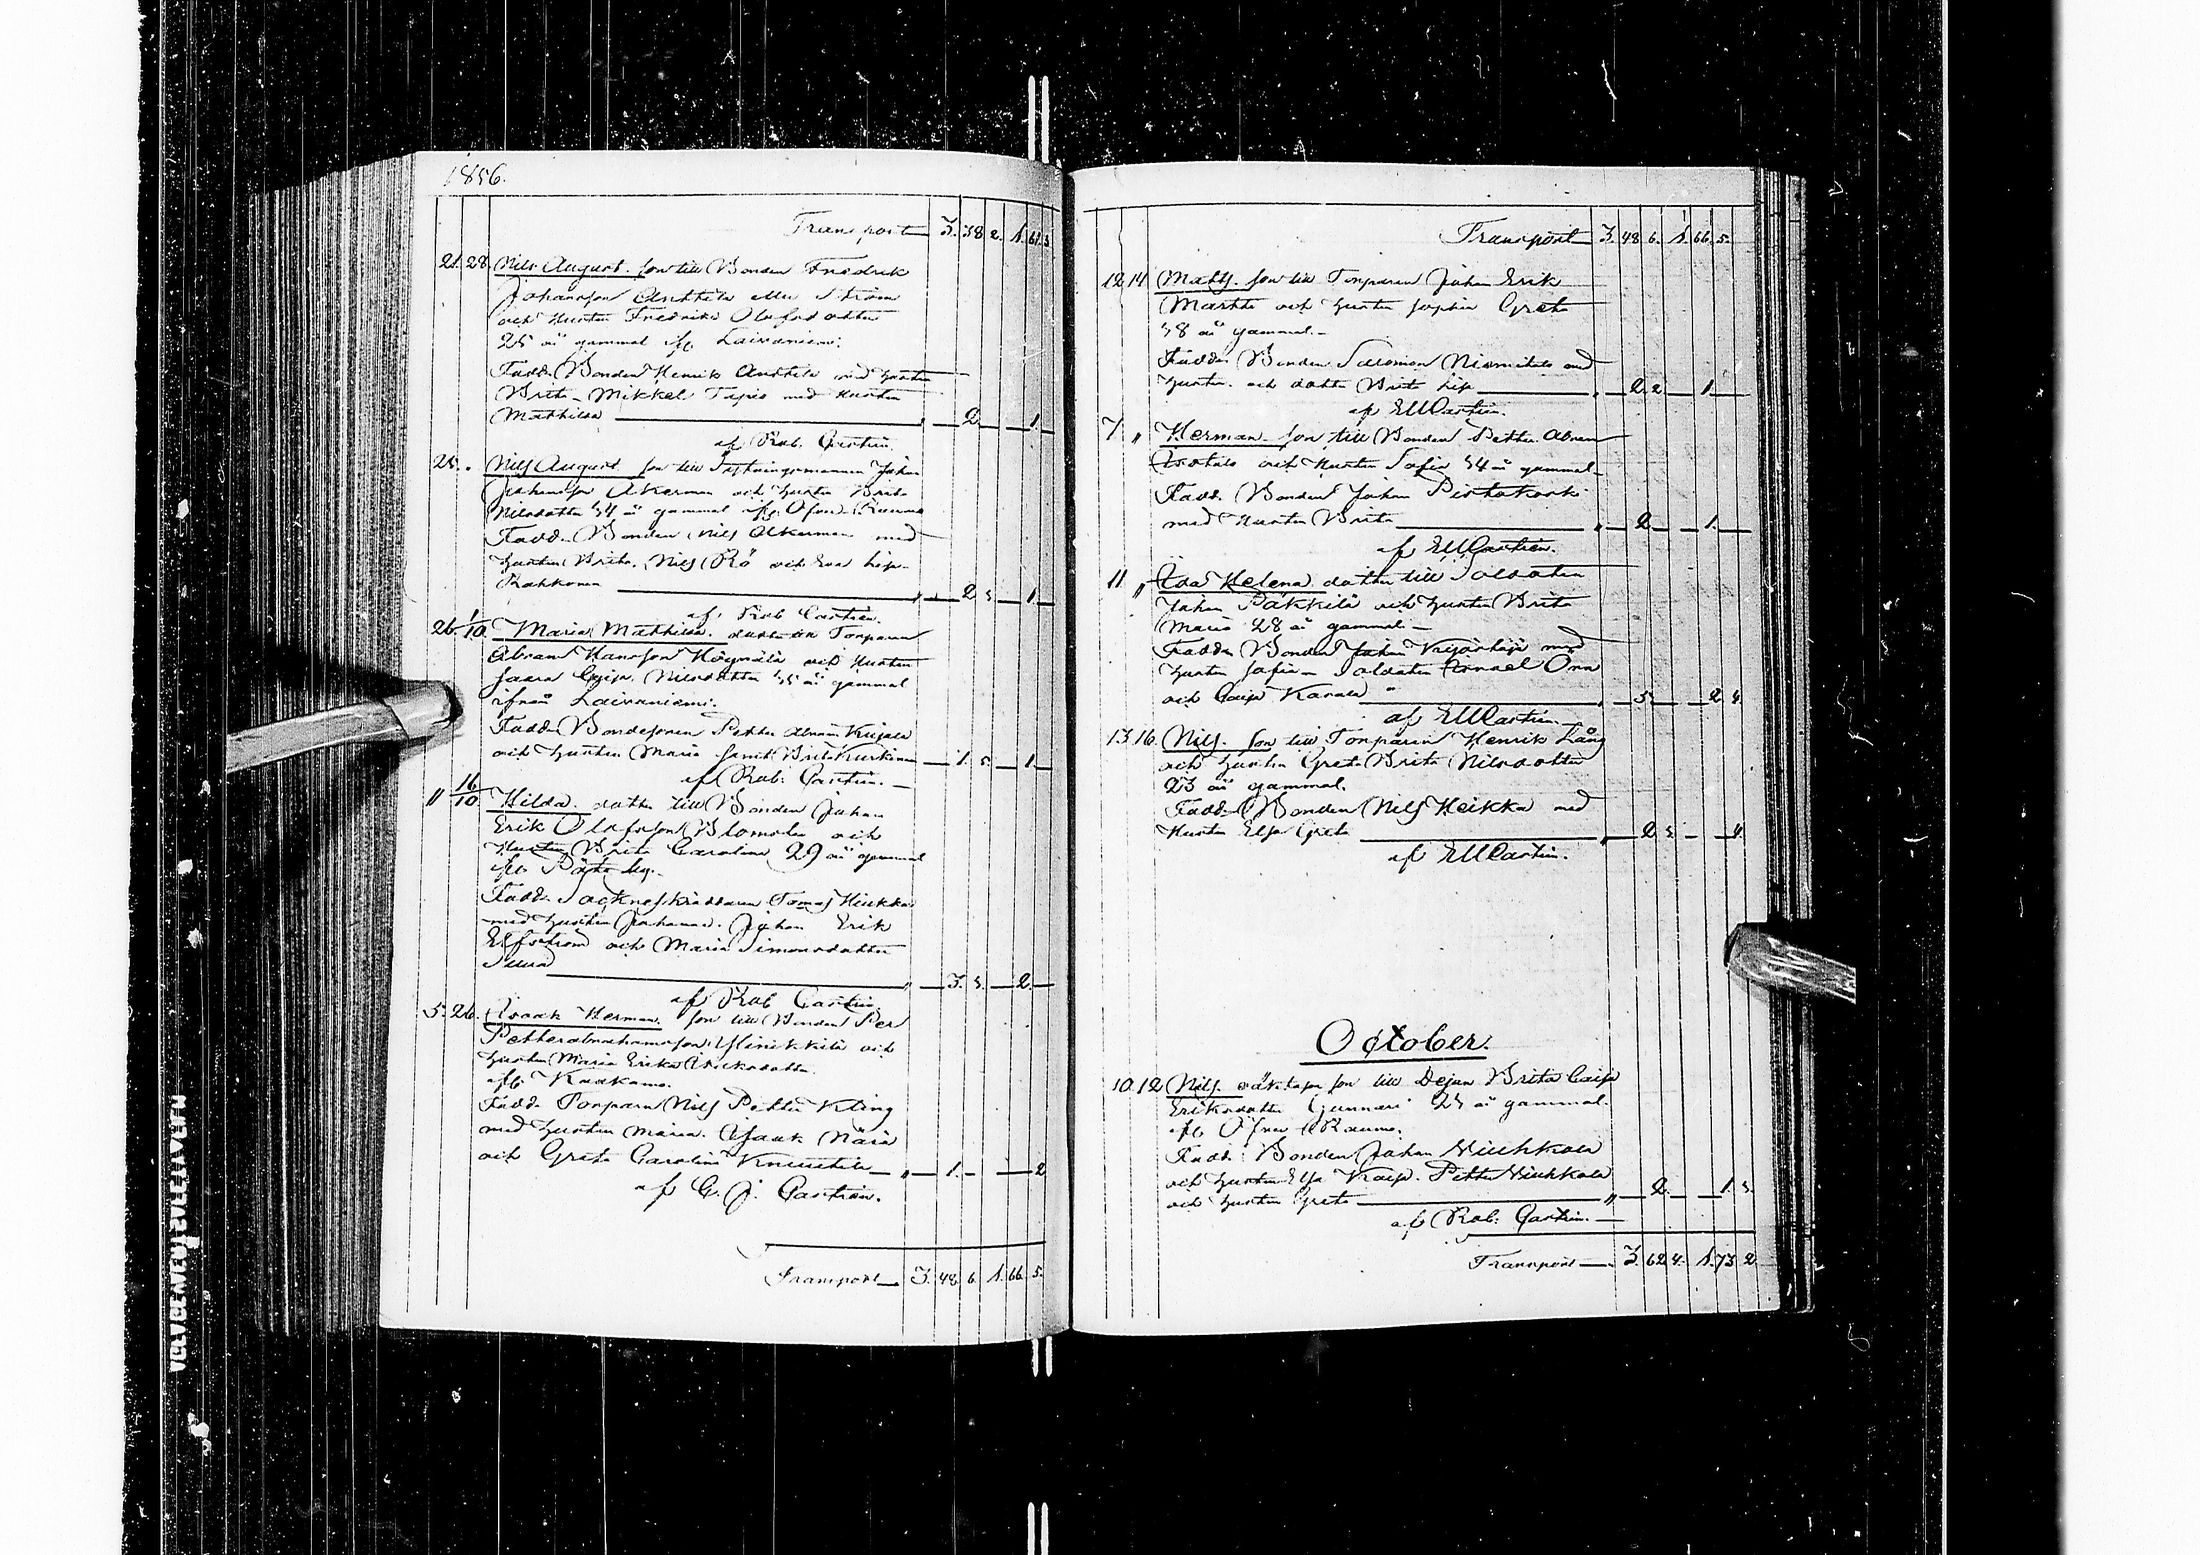 1856.
Transport 3. 38 2. 1. 61. 3
21. 28. Nils August. son till Bonden Fredrik
Johansson Anttila eller Ström
och Hustru Fredrika Olofsdotter
25 år gammal ifr. Laivaniemi.
Fadd. Bonden Henrik Anttila med hustru
Brita - Mikkel Tapio med Hustru
Mathilda " 2. 1.
af Rob. Castrén.
25. " Nils August son till Johan
Johansson Åkerman och hustru Brita
Nilsdotter 34 år gammal ifr. Öfver Raumo
Fadd. Bonden Nils Åkerman med
hustru Brita. Nils Rö och Eva Lisa
Rahkonen " 2 3. 1.
af. Rob Castrén.
26. 1/10. Maria Mathilda. dotter till Torparen
Abram Hansson och Hustru
Saara Caisa. Nilsdotter 35 år gammal
ifrån Laivaniemi.
Fadd. Bondesonen Petter Abram Kujala
och hustru Maria samt Brita Kurkinen 1. 5. 1.
af Rob. Castrén.
" 16/10. Hilda. dotter till Bonden Johan
Erik Olofsson Blomster och
Hustru Brita Carolina 29 år gammal
ifr. by.
Fadd. Sockneskräddaren Tomas Hiukka
med hustru Johanna. Johan Erik
Elfström och Maria Simonsdotter
" 3. 3. 2.
af Rob Castrén
5. 26. Isaak Herman. son till Bonden Per
Petter Abrahamsson Ylinikkilä och
hustru Maria Erika
ifr. Kaakamo.
Fadd. Torparn Nils Petter Kling
med hustru Maria. Isaak Näriä
och Greta Carolina " 1. 2
af C. J. Castrén.
Transport 3. 48 6. 1. 66. 5.
Transport 3. 48 6. 1. 66. 5.
12 14 Matts. son till Torparen Johan Erik
Martti och hustru Sophia Greta
38 år gammal.
Fadd. Bonden Salomon Niemitalo med
hustru. och dotter Brita Lisa " 2 2 1.
af EMCastrén.
7. " Herman. son till Bonden Petter Abram
Isotalo och Hustru Sofia 34 år gammal
Fadd. Bonden Johan Pirttikoski
med Hustru Brita " 2. 1.
af EMCastrén.
11 " Ida Helena. dotter till Soldaten
Johan Päkkilä och hustru Brita
Maria 28 år gammal
Fadd. Bonden Johan med
hustru Sofia - Soldaten Israel Örn
och Caisa " 3. 2 4.
af EMCastrén
13. 16. Nils. son till Torparen Henrik Lång
och hustru Greta Brita Nilsdotter
23 år gammal.
Fadd. Bonden Nils Heikka med
Hustru Elsa Greta " 2 3. 4.
af EMCastrén.
October.
10. 12 Nils. oäkta son till Dejan Brita Caisa
Eriksdotter Gunnari 25 år gammal.
ifr. Öfver Raumo.
Fadd. Bonden Johan Hiukkala
och hustru Elsa Kaisa. Petter Hiukkala
och hustru Greta " 2. 1. 3.
af Rob. Castrén.
Transport 3. 62 4. 1. 73 2